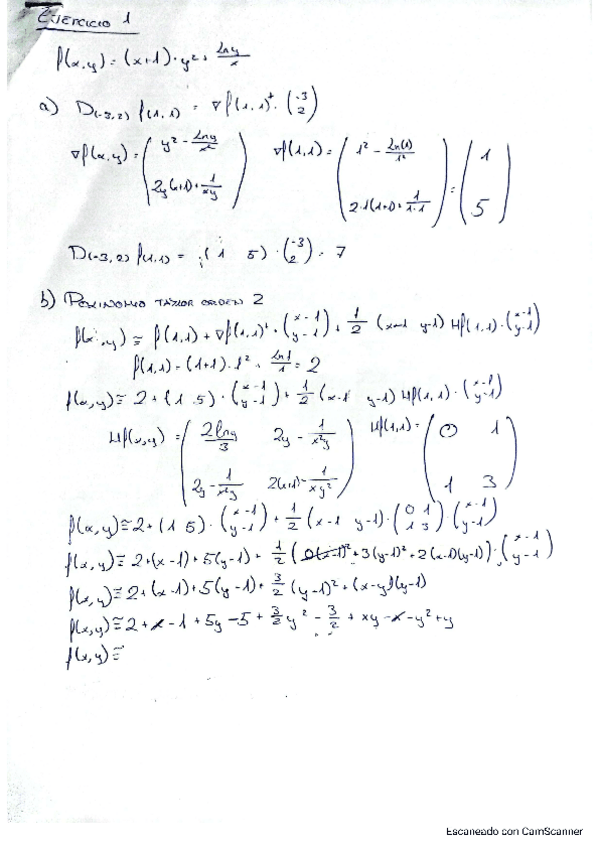 Ejercicio 1
f(x,y) = (x+1)·y² + lny/x
a) D(-3,2) f(1,1) = ∇f(1,1)ᵗ · (-3 2)
∇f(x,y) = (y² - lny/x² 2y(x+1) + 1/xy) ∇f(1,1) = (1² - ln(1)/1² 2·1(1+1) + 1/1·1) = (1 5)
D(-3,2) f(1,1) = (1 5) · (-3 2) = 7
b) Polinomio Taylor orden 2
f(x,y) ≅ f(1,1) + ∇f(1,1)ᵗ · (x-1 y-1) + 1/2 (x-1 y-1) Hf(1,1) · (x-1 y-1)
f(1,1) = (1+1)·1² + ln1/1 = 2
f(x,y) ≅ 2 + (1 5) · (x-1 y-1) + 1/2 (x-1 y-1) Hf(1,1) · (x-1 y-1)
Hf(x,y) = (2lny/3 2y - 1/x²y 2y - 1/x²y 2(x+1) - 1/xy²) Hf(1,1) = (0 1 1 3)
f(x,y) ≅ 2 + (1 5) · (x-1 y-1) + 1/2 (x-1 y-1) · (0 1 1 3) (x-1 y-1)
f(x,y) ≅ 2 + (x-1) + 5(y-1) + 1/2 (0(x-1)² + 3(y-1)² + 2(x-1)(y-1)) · (x-1 y-1)
f(x,y) ≅ 2 + (x-1) + 5(y-1) + 3/2 (y-1)² + (x-y)(y-1)
f(x,y) ≅ 2 + x - 1 + 5y - 5 + 3/2 y² - 3/2 + xy - x - y² + y
f(x,y) ≅
Escaneado con CamScanner